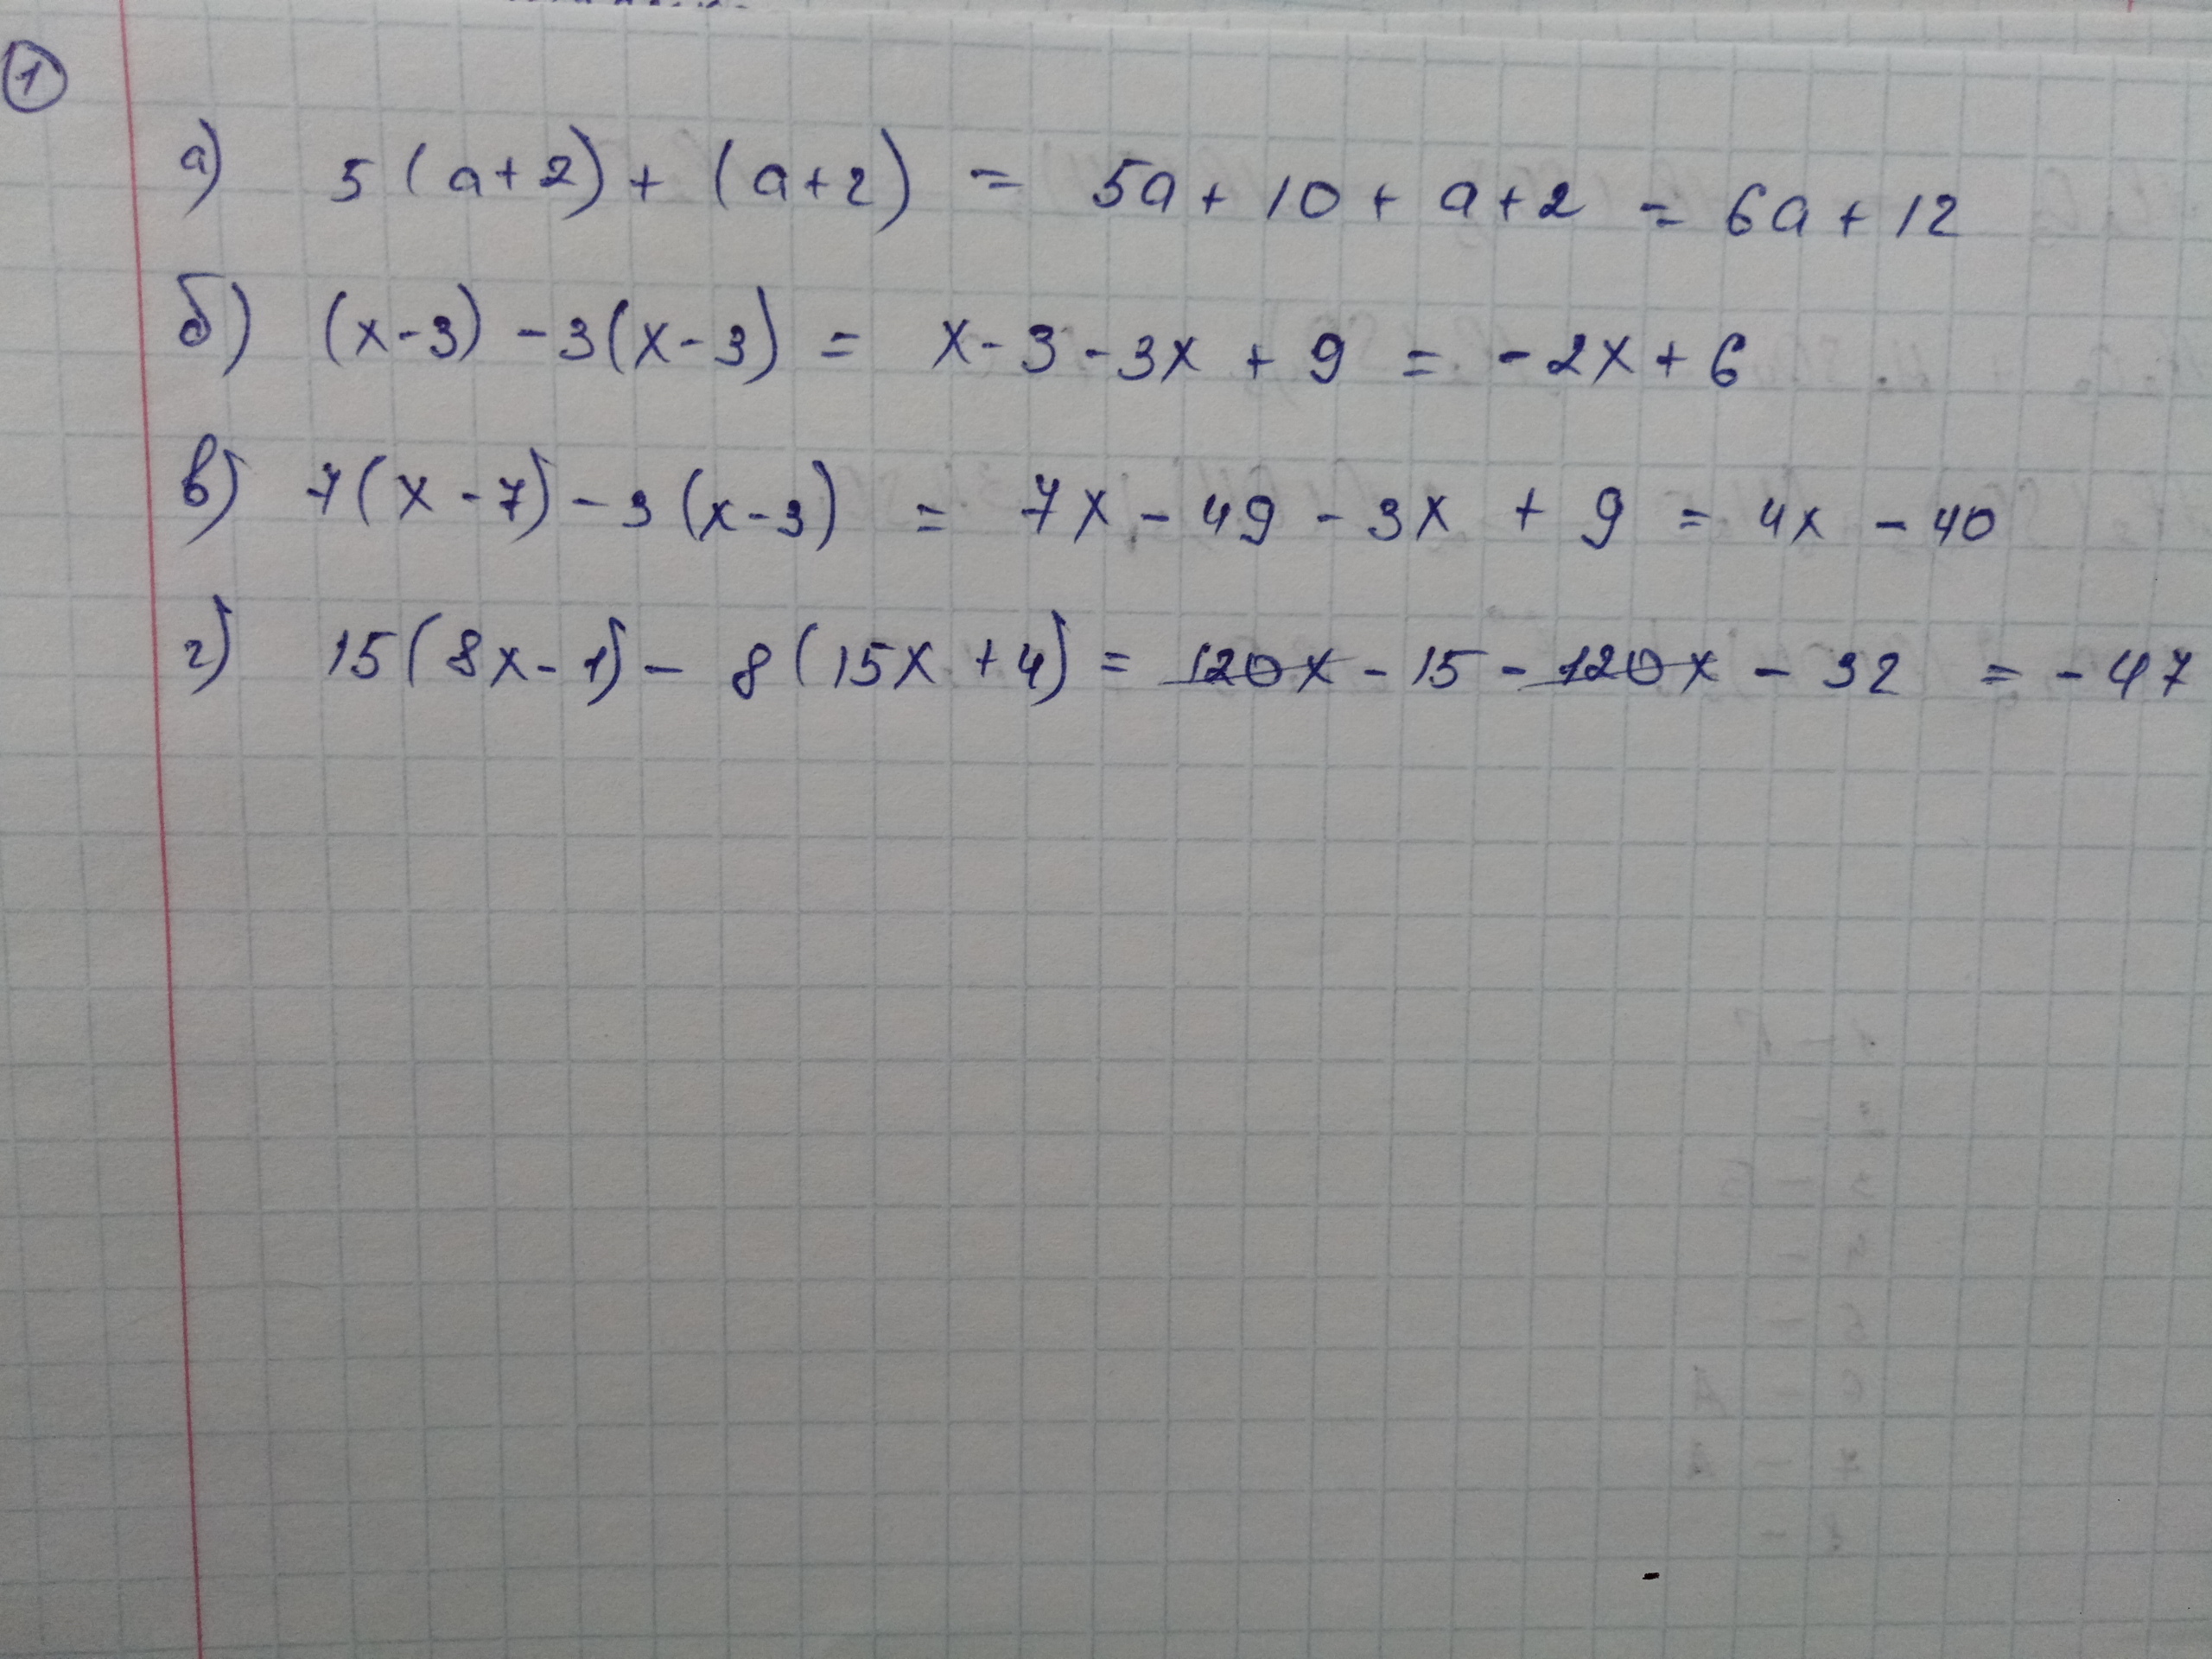 1
а) 5(a+2)+(a+2) = 5a+10+a+2 = 6a+12
б) (x-3)-3(x-3) = x-3-3x+9 = -2x+6
в) 7(x-7)-3(x-3) = 7x-49-3x+9 = 4x-40
г) 15(8x-1)-8(15x+4) = 120x-15-120x-32 = -47